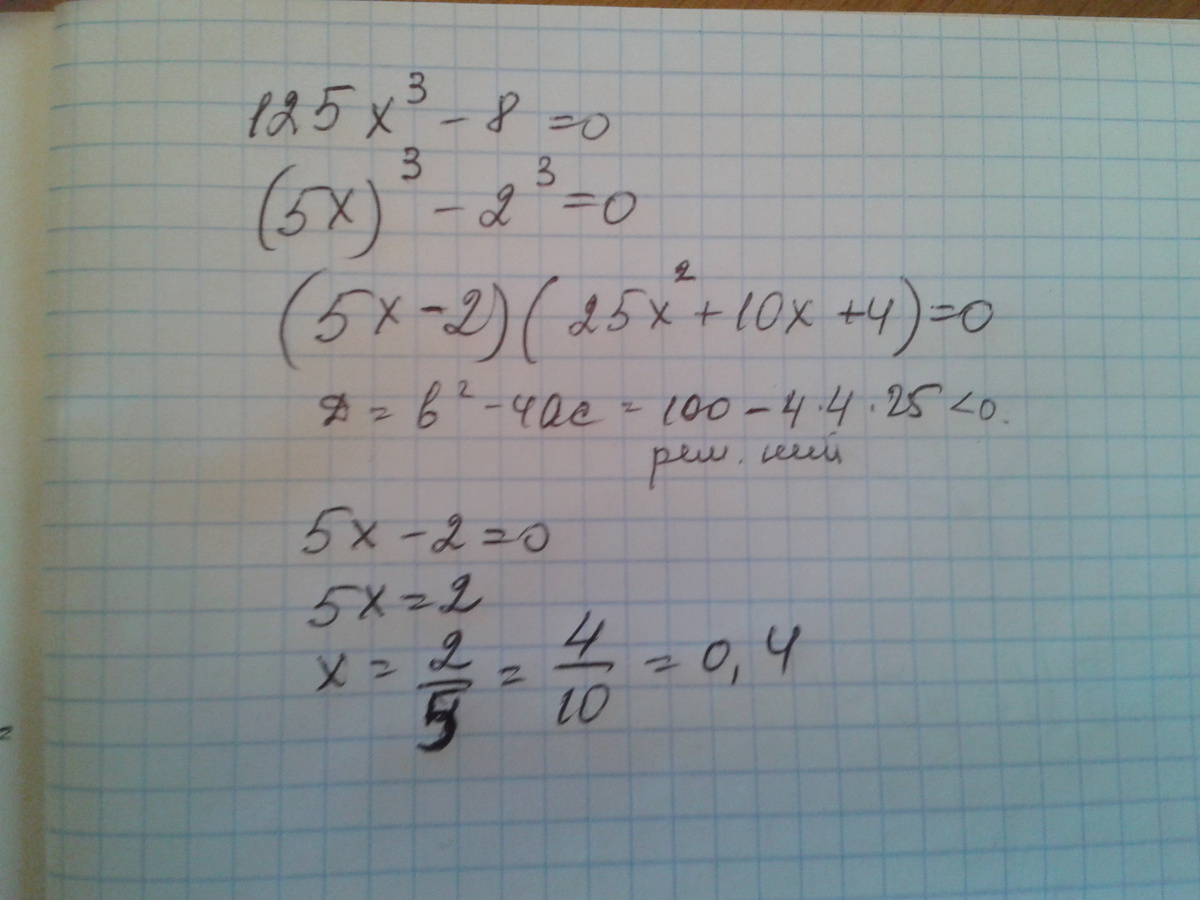 125x³ - 8 = 0
(5x)³ - 2³ = 0
(5x - 2)(25x² + 10x + 4) = 0
D = b² - 4ac = 100 - 4·4·25 < 0.
реш.
5x - 2 = 0
5x = 2
x = 2/5 = 4/10 = 0,4